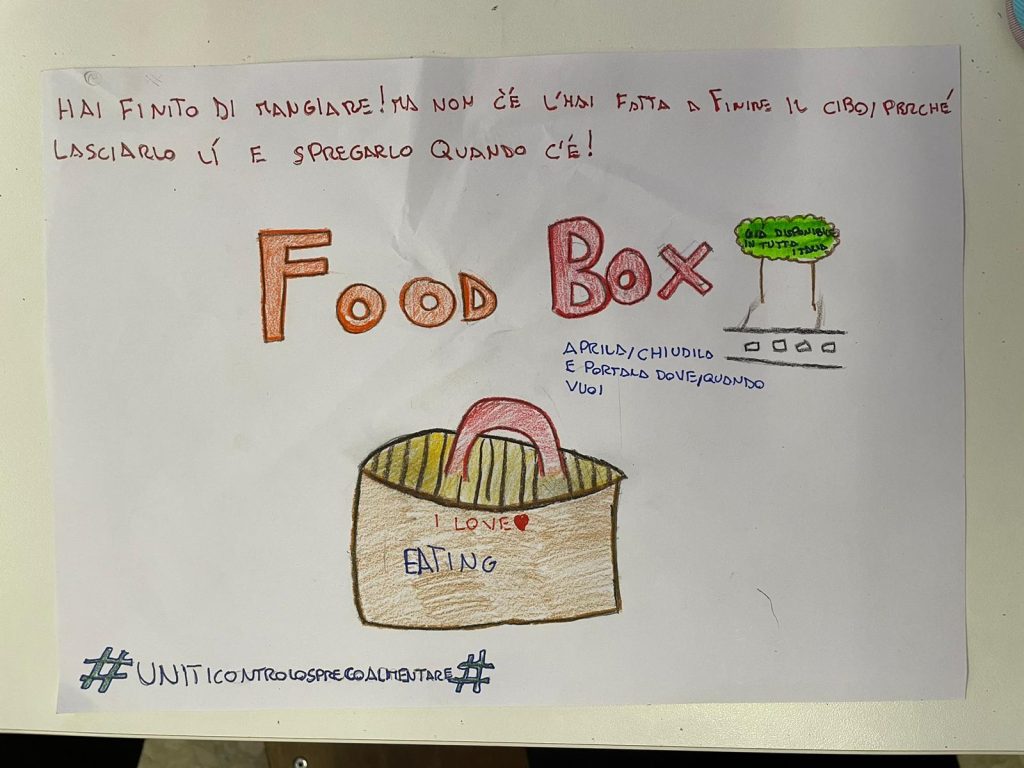 HAI FINITO DI MANGIARE! MA NON C'È L'HAI FATTA A FINIRE IL CIBO/PERCHÉ
LASCIARLO LÍ E SPREGARLO QUANDO C'É!
FOOD BOX
GIÀ DISPONIBILE
IN TUTTA
ITALIA
APRILA/CHIUDILA
E PORTALA DOVE/QUANDO
VUOI
I LOVE
EATING
#UNITICONTROLOSPRECOALIMENTARE#